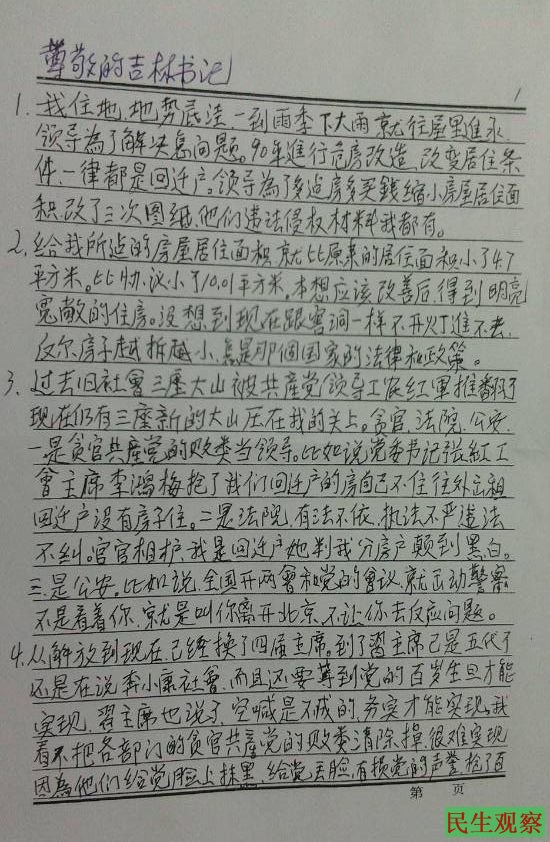 尊敬的吉林书记
1
1. 我住地，地势底洼一到雨季下大雨就往屋里進水，
领导為了解决這问题。90年進行危房改造，改变居住条
件，一律都是回迁户。领导為了多迠房多买錢縮小房屋居住面
积，改了三次图纸，他们违法侵权材料我都有。
2. 给我所迠的房屋居住面积就比原来的居住面积小了4.7
平方米。比协议小了10.01平方米。本想应该改善后，得到明亮
宽敞的住房。没想到现在跟窑洞一样不开灯進不去，
反尔房子越拆越小，這是那個国家的法律和政策。
3. 过去旧社會三座大山被共產党领导工农红軍推翻了
现在仍有三座新的大山压在我的头上。贪官，法院，公安，
一是贪官共產党的败类当领导。比如说党委书记张紅工
會主席李鴻梅抢了我们回迁户的房自己不住往外出租
回迁户没有房子住。二是法院，有法不依，执法不严違法
不纠。官官相护我是回迁户她判我分房户颠到黑白。
三是公安。比如说，全国开两會和党的會议，就出动警察
不是看着你，就是叫你离开北京，不让你去反应问题。
4. 从解放到现在，己经换了四届主席。到了習主席己是五代了
还是在说奔小康社會，而且还要等到党的百岁生旦才能
实现，習主席也说了，空喊是不成的，务实才能实现。我
看不把各部门的贪官共產党的败类清除掉，很难实现
因為他们给党脸上抹黑，给党丢脸，有损党的声誉，抢了百
第 页
民生观察